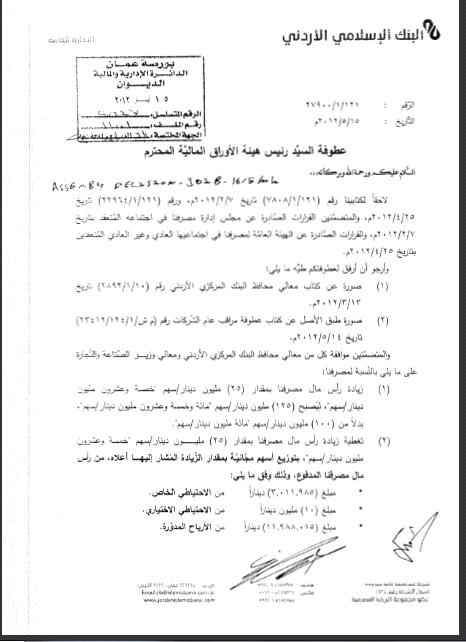 البنك الإسلامي الأردني
الإدارة العامة
بورصة عمان
الدائرة الإدارية والمالية
الديوان
١٥ ٢٠١٢
الرقم المتسلسل
رقم الملف
الجهة المختصة
الرقم : ٢٧٩٠٠/١/١٢١
التاريخ : ٢٠١٢/٥/١٥م
عطوفة السيد رئيس هيئة الأوراق المالية المحترم
السلام عليكم ورحمة الله وبركاته...
ASSEMBLY DECISION - JOIB - 16/5/2012
لاحقاً لكتابينا رقم (٧٨٠٨/١/١٢١) تاريخ ٢٠١٢/٢/٧م، ورقم (٢٢٩٦٤/١/١٢١) تاريخ
٢٠١٢/٤/٢٥م، والمتضمنين القرارات الصادرة عن مجلس إدارة مصرفنا في اجتماعه المنعقد بتاريخ
٢٠١٢/٢/٧م، والقرارات الصادرة عن الهيئة العامة لمصرفنا في اجتماعيها العادي وغير العادي المنعقدين
بتاريخ ٢٠١٢/٤/٢٥م.
وأرجو أن أرفق لعطوفتكم طيه ما يلي:
(١) صورة عن كتاب معالي محافظ البنك المركزي الأردني رقم (٢٨٩٢/١/١٠) تاريخ
٢٠١٢/٣/١٣م.
(٢) صورة طبق الأصل عن كتاب عطوفة مراقب عام الشركات رقم (م ش/١/١٢٤/٢٣٤١٢)
تاريخ ٢٠١٢/٥/١٤م.
والمتضمنين موافقة كل من معالي محافظ البنك المركزي الأردني ومعالي وزير الصناعة والتجارة
على ما يلي بالنسبة لمصرفنا:
(١) زيادة رأس مال مصرفنا بمقدار (٢٥) مليون دينار/سهم "خمسة وعشرون مليون
دينار/سهم"، ليصبح (١٢٥) مليون دينار/سهم "مائة وخمسة وعشرون مليون دينار/سهم"،
بدلاً من (١٠٠) مليون دينار/سهم "مائة مليون دينار/سهم".
(٢) تغطية زيادة رأس مال مصرفنا بمقدار (٢٥) مليون دينار/سهم "خمسة وعشرون
مليون دينار/سهم"، بتوزيع أسهم مجانية بمقدار الزيادة المشار إليها أعلاه، من رأس
مال مصرفنا المدفوع، وذلك وفق ما يلي:
• مبلغ (٣,٠١١,٩٨٥) ديناراً من الاحتياطي الخاص.
• مبلغ (١٠) مليون ديناراً من الاحتياطي الاختياري.
• مبلغ (١١,٩٨٨,٠١٥) ديناراً من الأرباح المدورة.
شركة مساهمة عامة محدودة
عضو مجموعة البركة المصرفية
هاتف
فاكس
www.jordanislamicbank.com